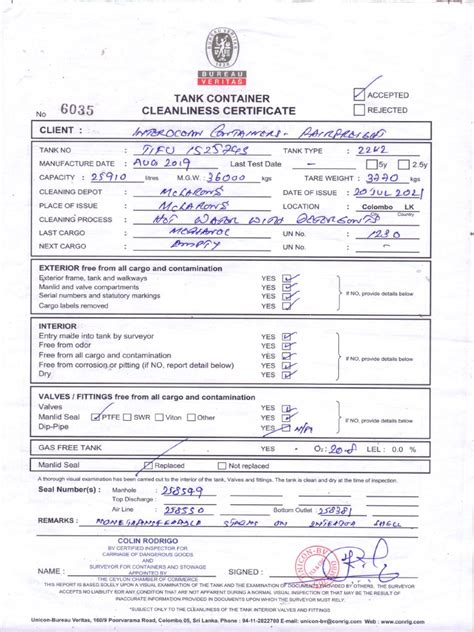 BUREAU VERITAS
1828
BUREAU
VERITAS
TANK CONTAINER
CLEANLINESS CERTIFICATE
ACCEPTED
REJECTED
No 6035
CLIENT : INTEROCEAN CONTAINERS -
TANK NO : TIFU TANK TYPE : 22K2
MANUFACTURE DATE : AUG 2019 Last Test Date - 5y 2.5y
CAPACITY : 25910 litres M.G.W. : 36000 kgs TARE WEIGHT : kgs
CLEANING DEPOT : McLARONS DATE OF ISSUE : 20 JUL 2021
PLACE OF ISSUE : McLARONS LOCATION : Colombo LK
City Country
CLEANING PROCESS : HOT WATER WITH DETERGENTS
LAST CARGO : METHANOL UN No. : 1230
NEXT CARGO : EMPTY UN No. :
EXTERIOR free from all cargo and contamination YES
Exterior frame, tank and walkways YES
Manlid and valve compartments YES
Serial numbers and statutory markings YES
Cargo labels removed YES
If NO, provide details below
INTERIOR
Entry made into tank by surveyor YES
Free from odor YES
Free from all cargo and contamination YES
Free from corrosion or pitting (if NO, report detail below) YES
Dry YES
If NO, provide details below
VALVES / FITTINGS free from all cargo and contamination
Valves YES
Manlid Seal PTFE SWR Viton Other YES
Dip-Pipe YES N/A
If NO, provide details below
GAS FREE TANK YES - O2: 20.8 LEL : 0.0 %
Manlid Seal Replaced Not replaced
A thorough visual examination has been carried out to the interior of the tank, Valves and fittings. The tank is clean and dry at the time of inspection.
Seal Number(s) : Manhole : 258549
Top Discharge :
Air Line : 258550 Bottom Outlet : 258381
REMARKS : STAINS ON INTERIOR SHELL
COLIN RODRIGO
BV CERTIFIED INSPECTOR FOR
CARRIAGE OF DANGEROUS GOODS
AND
SURVEYOR FOR CONTAINERS AND STOWAGE
APPOINTED BY
THE CEYLON CHAMBER OF COMMERCE
NAME : SIGNED :
UNICON-BV
THIS REPORT IS BASED SOLELY UPON A VISUAL EXAMINATION OF THE TANK AND THE EXAMINATION OF DOCUMENTS PROVIDED. THE SURVEYOR
ACCEPTS NO LIABILITY FOR ANY CONDITION THAT ARE NOT APPARENT IN DOCUMENTATION PROVIDED OR REASONABLY APPARENT
DURING A NORMAL VISUAL INSPECTION WHICH MUST FULLY
*SUBJECT ONLY TO THE CLEANLINESS OF THE TANK INTERIOR VALVES AND FITTINGS
Unicon-Bureau Veritas, 160/9 Poorvarama Road, Colombo.05, Sri Lanka. Phone : 94-11-2022760 E-mail: unicon-bv@conrig.com Web : www.conrig.com